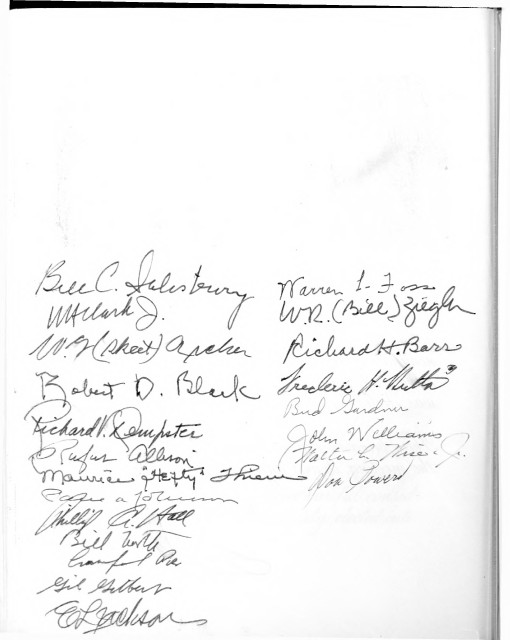 Bill C. Salisbury
W H Clark Jr.
W. G. (Skeet) Archer
Robert D. Black
Richard V. Dempster
Rufus Allison
Maurice "Hefty"
Johnson
Phillip A. Hall
Bill North
Gil Gilbert
E L Jackson
Warren L. Foss
W. R. (Bill) Ziegler
Richard H. Barr
Frederic H.
Bud Gardner
John Williams
Walter E. Jr.
Don Powers